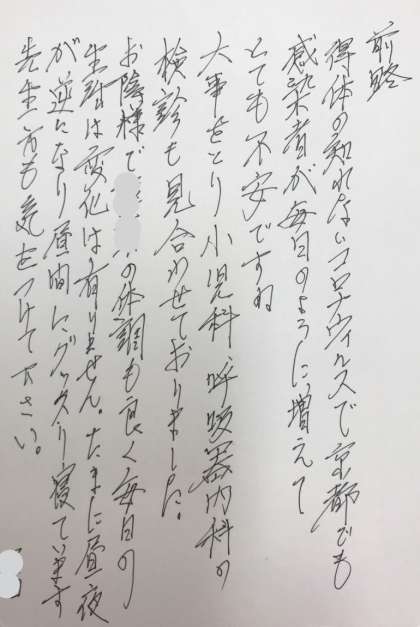 前略
得体の知れないコロナウィルスで京都でも
感染者が毎日のように増えて
とても不安ですね
大事をとり小児科、呼吸器内科の
検診も見合わせておりました。
お陰様での体調も良く毎日の
生活は変化は有りません。たまに昼夜
が逆になり昼間にグッスリ寝ています
先生方も気をつけて下さい。